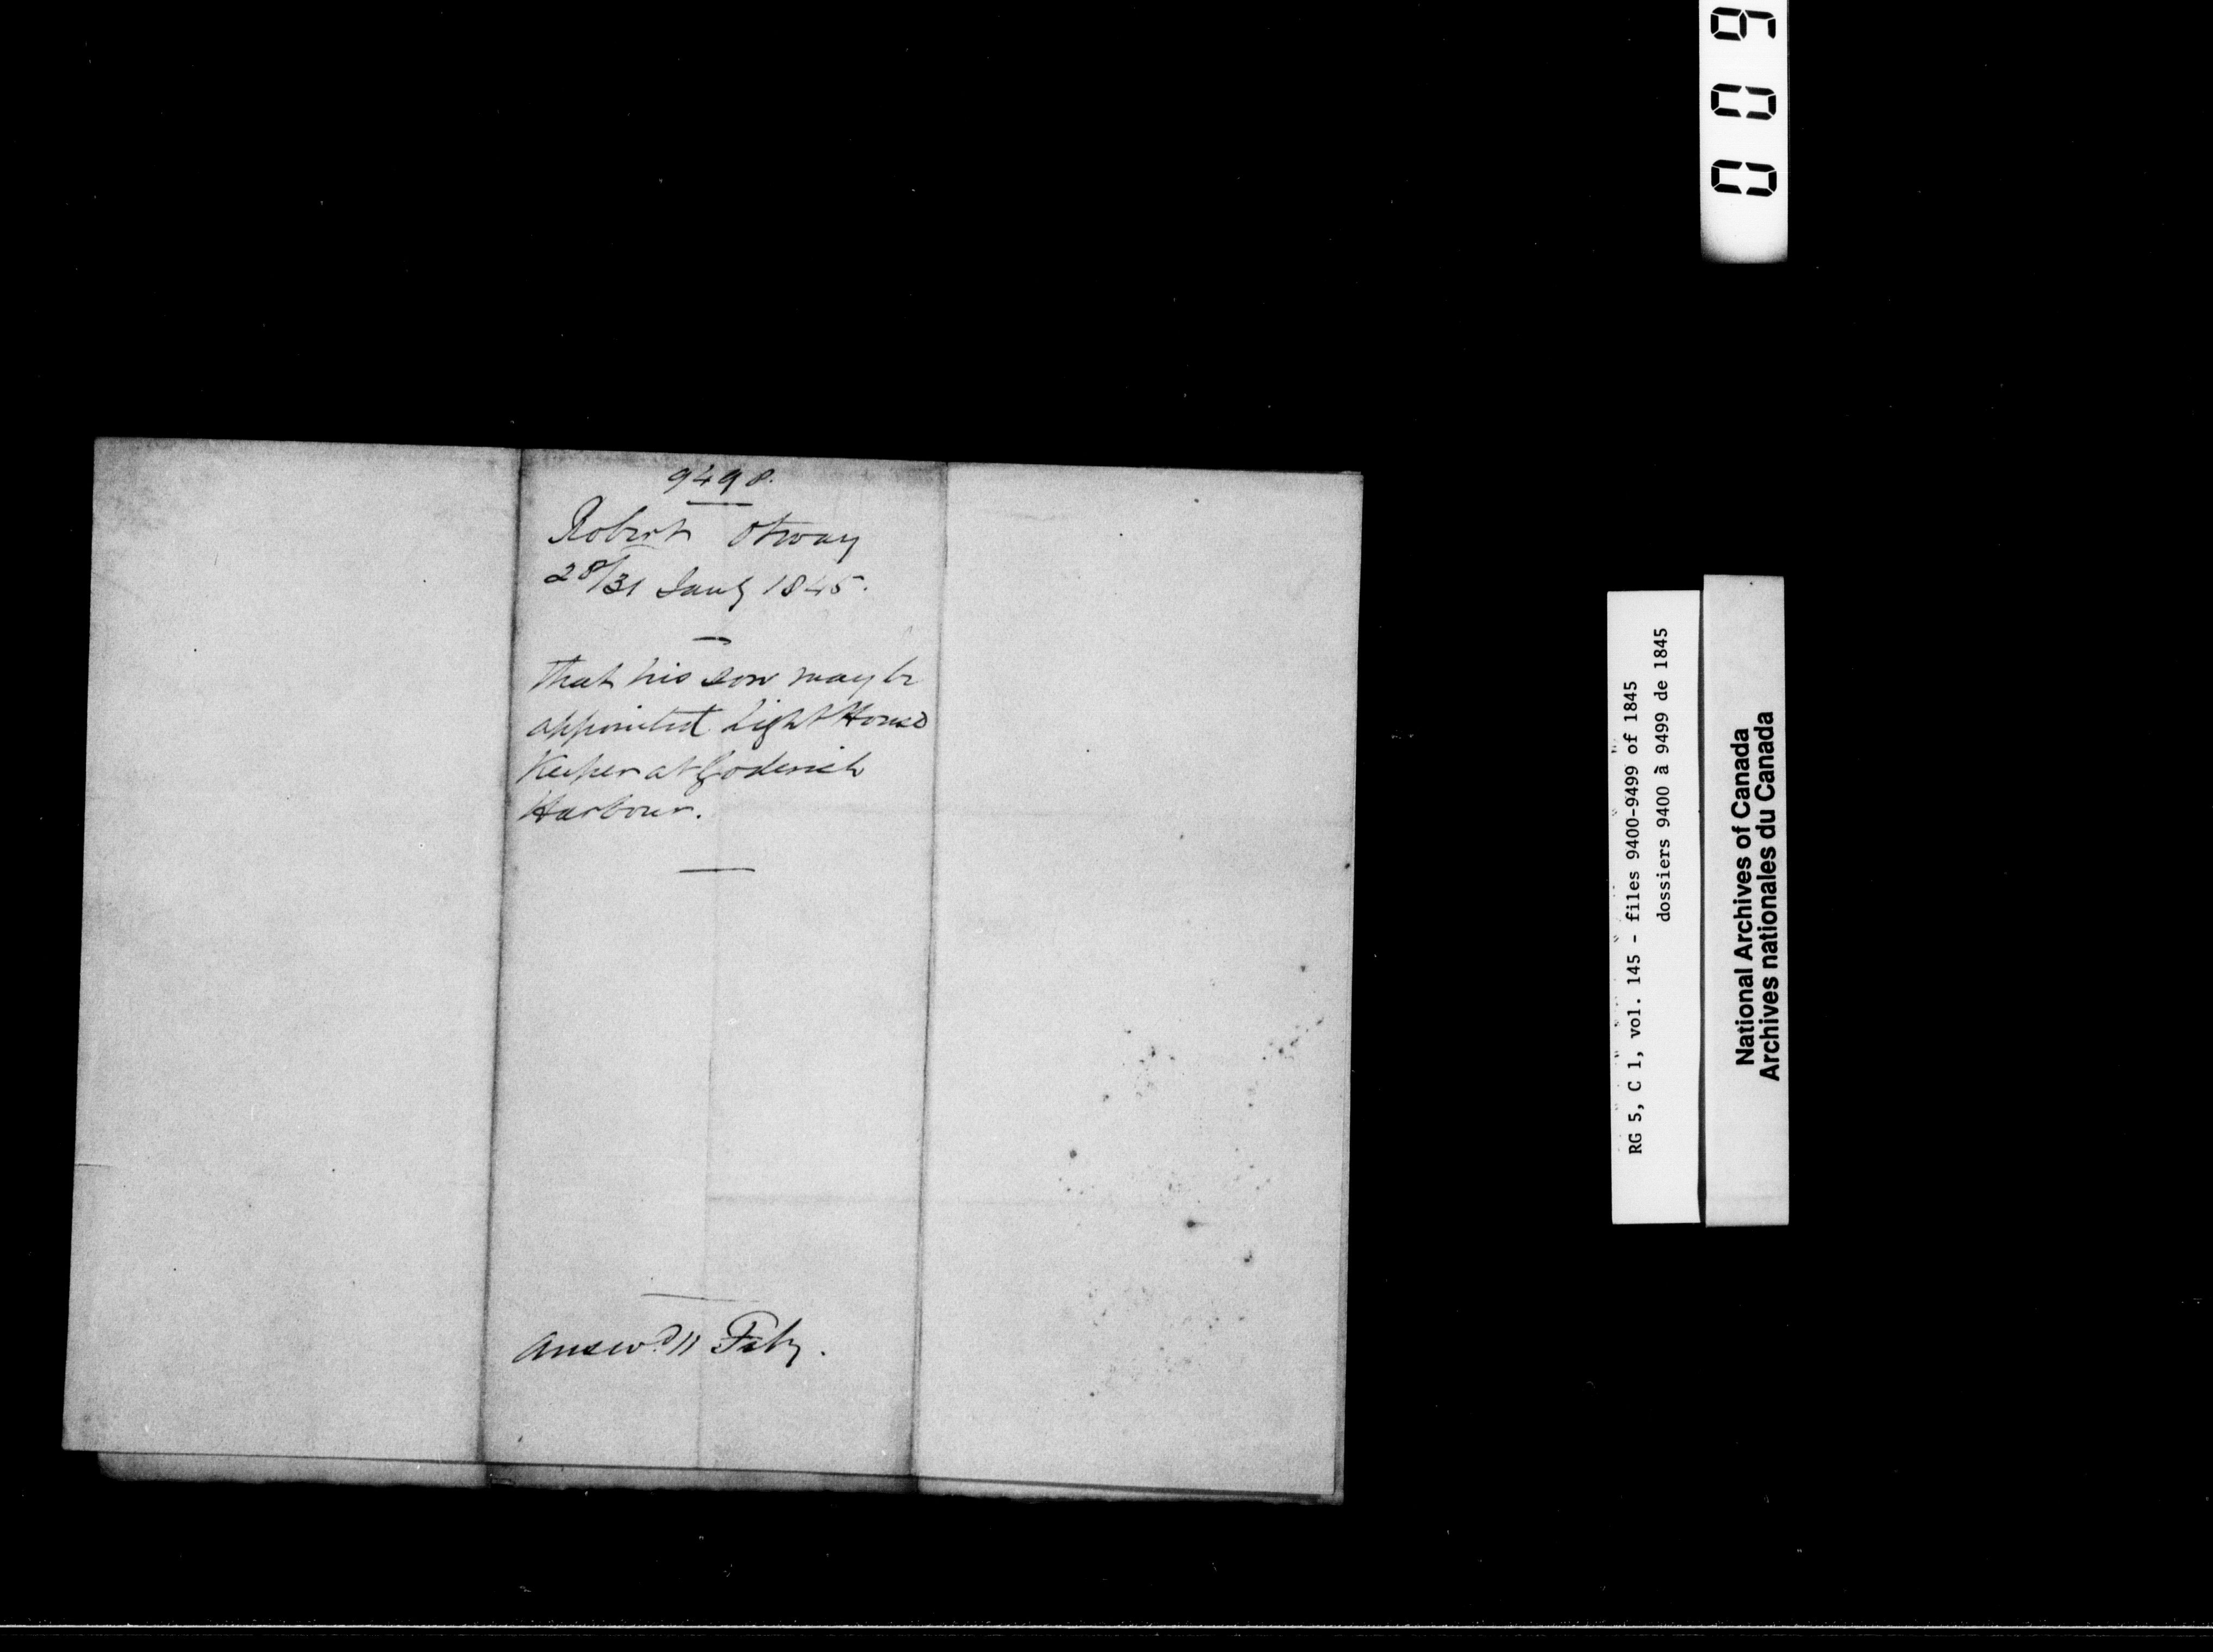 9498.
Robert Otway
28/31 Jany 1845.
That his son may be
appointed Light House
Keeper at Goderich
Harbour.
Answd 11 Feby.
RG 5, C 1, vol. 145 - files 9400-9499 of 1845
dossiers 9400 à 9499 de 1845
National Archives of Canada
Archives nationales du Canada
009